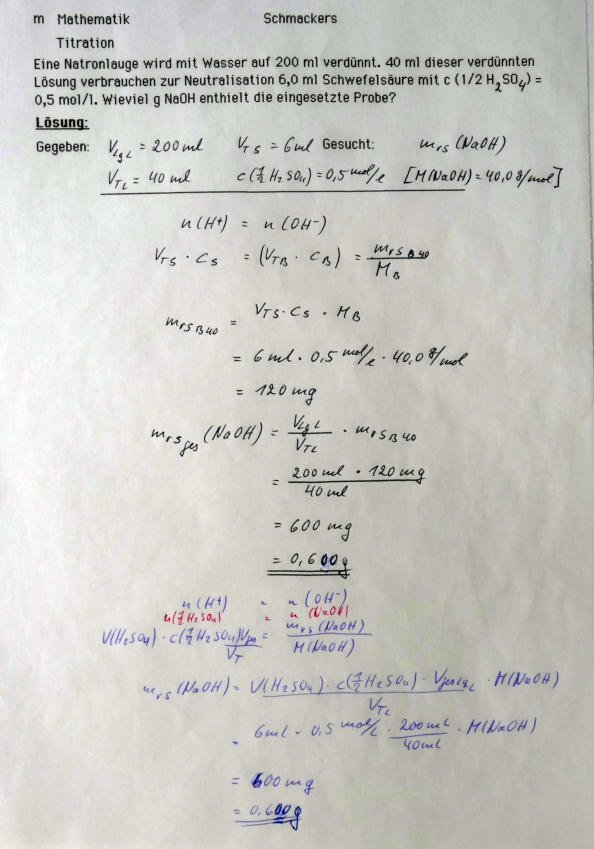 m Mathematik Schmackers
Titration
Eine Natronlauge wird mit Wasser auf 200 ml verdünnt. 40 ml dieser verdünnten
Lösung verbrauchen zur Neutralisation 6,0 ml Schwefelsäure mit c (1/2 H₂SO₄) =
0,5 mol/l. Wieviel g NaOH enthielt die eingesetzte Probe?
Lösung:
Gegeben: V_LgL = 200 ml V_TS = 6 ml Gesucht: m_rS (NaOH)
V_TL = 40 ml c(1/2 H₂SO₄) = 0,5 mol/l [M(NaOH) = 40,0 g/mol]
n(H⁺) = n(OH⁻)
V_TS · C_S = (V_TB · C_B) = m_rSB40 / M_B
m_rSB40 = V_TS · C_S · M_B
= 6 ml · 0,5 mol/l · 40,0 g/mol
= 120 mg
m_rSges (NaOH) = V_LgL / V_TL · m_rSB40
= 200 ml · 120 mg / 40 ml
= 600 mg
= 0,600 g
n(H⁺) = n(OH⁻)
n(1/2 H₂SO₄) = n(NaOH)
V(H₂SO₄) · c(1/2 H₂SO₄) V_ges / V_T = m_rS (NaOH) / M(NaOH)
m_rS (NaOH) = V(H₂SO₄) · c(1/2 H₂SO₄) · V_gesLgL / V_TL · M(NaOH)
= 6 ml · 0,5 mol/L · 200 mL / 40 mL · M(NaOH)
= 600 mg
= 0,600 g